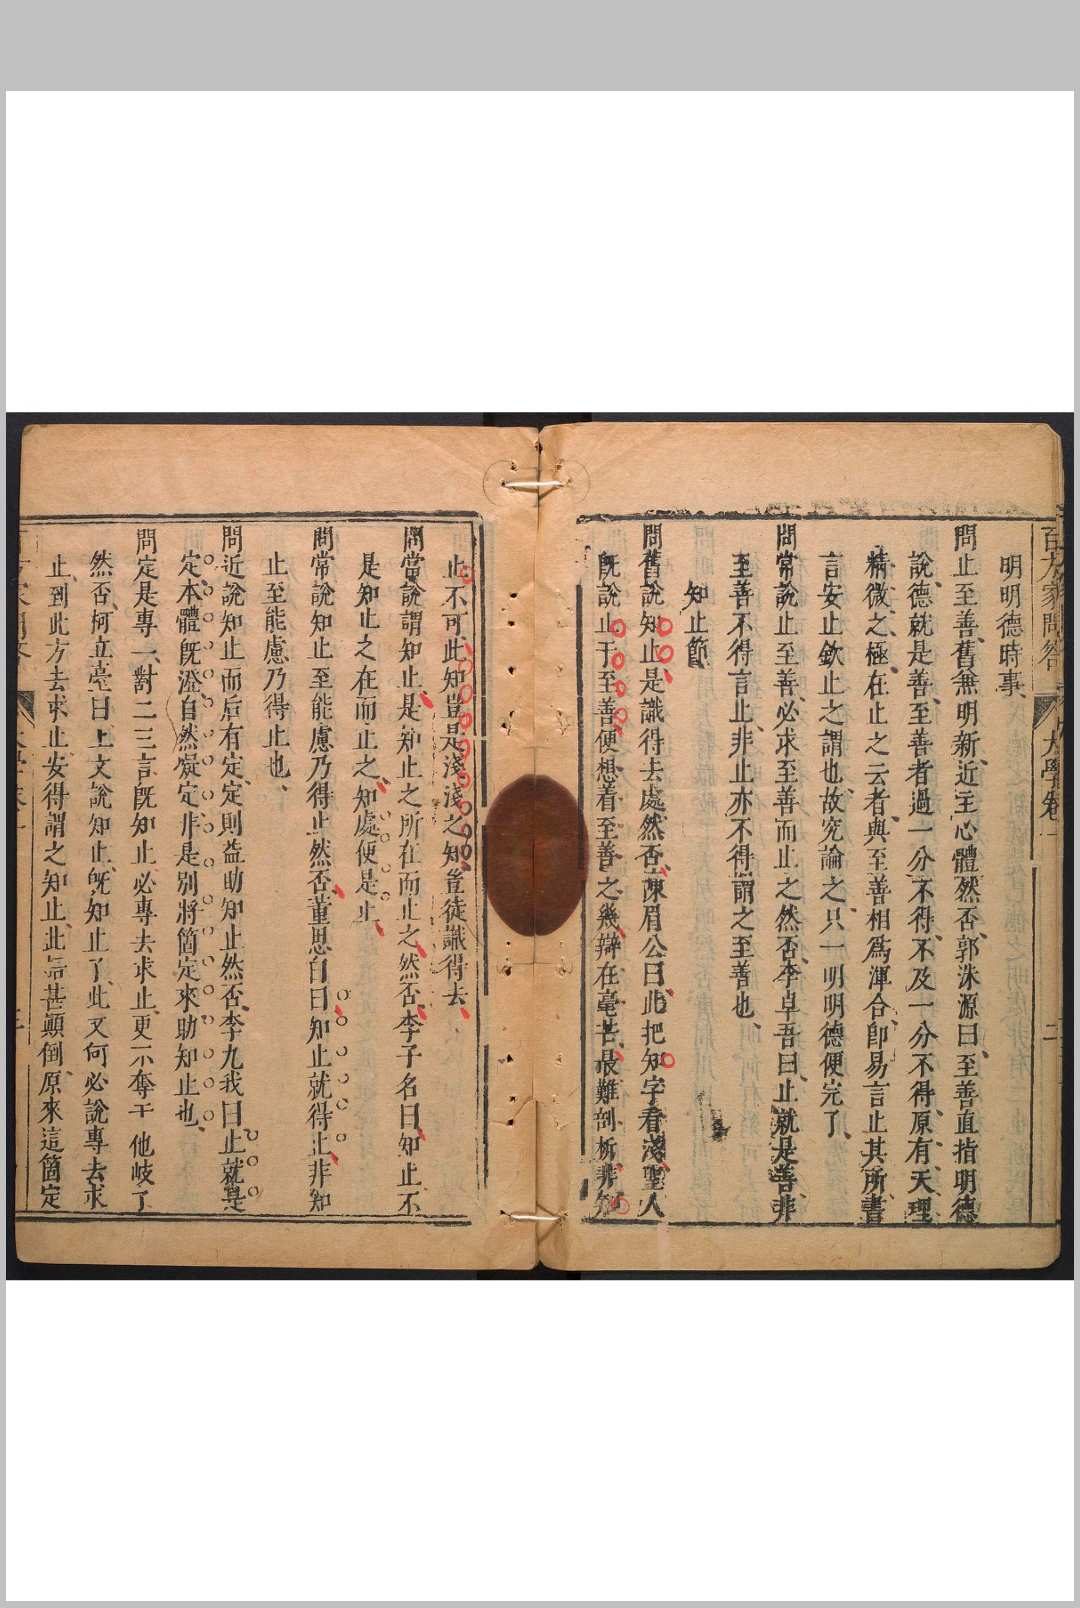 百方家問答 大學卷一 二
明明德時事、
問止至善、舊兼明新、近主心體然否、郭洙源曰、至善直指明德
說、德就是善、至善者過一分不得、不及一分不得、原有天理
精微之極、在止之云者、與至善相爲渾合、卽易言止其所、書
言安止欽止之謂也、故究論之、只一明明德便完了、
問常說止至善、必求至善而止之然否、李卓吾曰、止就是善、非
至善不得言止、非止亦不得謂之至善也、
知止節
問舊說知止、是識得去處然否、陳眉公曰、此把知字看淺、聖人
旣說止于至善、便想着至善之幾、辯在毫芒、最難剖析、非知
止不可、此知豈是淺淺之知、豈徒識得去、
問當說謂知止、是知止之所在而止之、然否、李子名曰、知止不
是知止之在而止之、知處便是止、
問常說知止至能慮乃得止、然否、董思白曰、知止就得止、非知
止至能慮乃得止也、
問近說知止而后有定、定則益助知止然否、李九我曰、止就是
定、本體旣澄、自然凝定、非是別將箇定來、助知止也、
問定是專一、對二三言、旣知止、必專去求止、更不奪于他岐了
然否、柯立臺曰、上文說知止、旣知止了、此又何必說專去求
止、到此方去求止、安得謂之知止、此語甚顛倒、原來這箇定